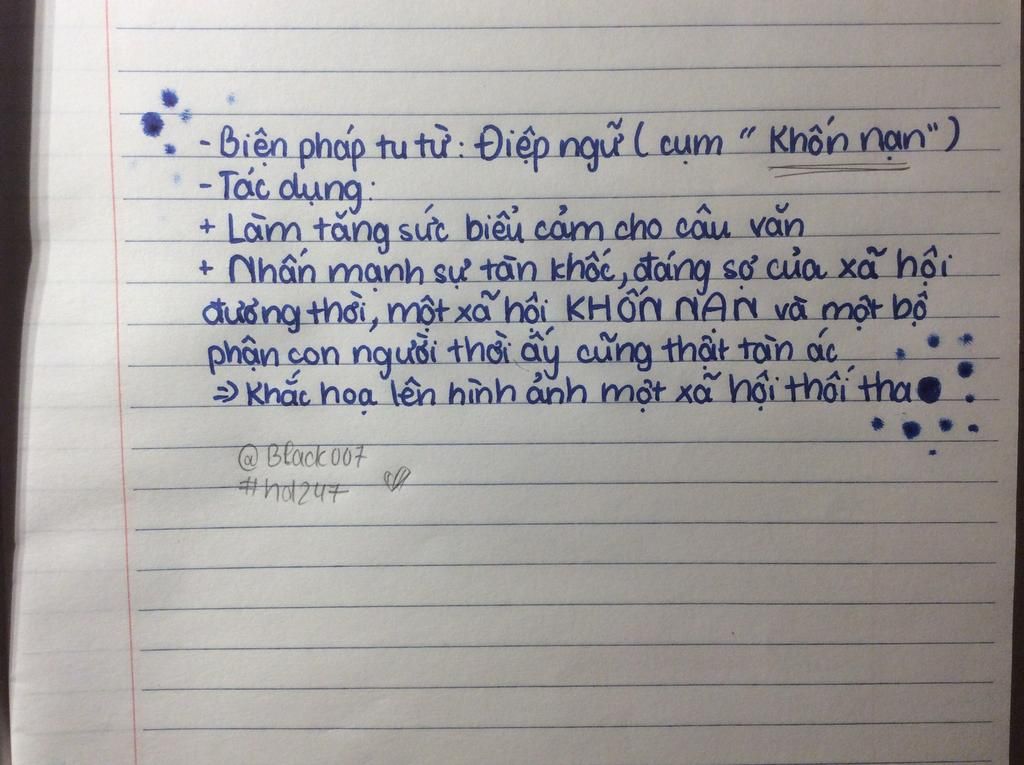 - Biện pháp tu từ: Điệp ngữ ( cụm " Khốn nạn")
- Tác dụng:
+ Làm tăng sức biểu cảm cho câu văn
+ Nhấn mạnh sự tàn khốc, đáng sợ của xã hội
đương thời, một xã hội KHỐN NẠN và một bộ
phận con người thời ấy cũng thật tàn ác
=> Khắc hoạ lên hình ảnh một xã hội thối tha
@Black007
#hd247